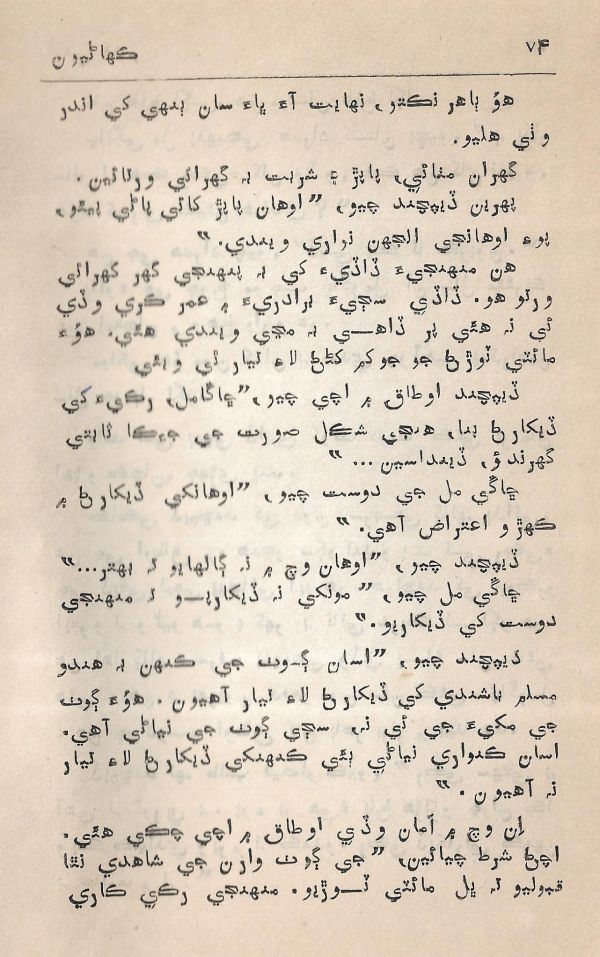 ۷۴
ڪهاڻيون
هوُ ٻاهر نڪتو، نهايت آءُ ڀاءُ سان ٻنهي کي اندر
وٺي هليو.
گهران مٺائي، پاپڙ ۽ شربت بہ گهرائي ورتائين.
پهرين ڏيپچند چيو، ”اوهان پاپڙ کائي پاڻي پيئو،
پوءِ اوهانجي الجهن نواري ويندي.“
هن منهنجيءَ ڏاڏيءَ کي بہ پنهنجي گهر گهرائي
ورتو هو. ڏاڏي سڄيءَ برادريءَ ۾ عمر ڪري وڏي
ئي نہ هئي پر ڏاهي بہ مڃي ويندي هئي. هوءَ
مائٽي ٽوڙڻ جو جوکم کڻڻ لاءِ تيار ٿي ويئي
ڏيپچند اوطاق ۾ اچي چيو، ”چاڳامل، رڪيءَ کي
ڏيکارڻ بنا، هنجي شڪل صورت جي جيڪا ثابتي
گهرندؤ، ڏينداسين...“
چاڳي مل جي دوست چيو، ”اوهانکي ڏيکارڻ ۾
ڪهڙو اعتراض آهي.“
ڏيپچند چيو، ”اوهان وچ ۾ نہ ڳالهايو تہ بهتر...“
چاڳي مل چيو، ”مونکي نہ ڏيکاريو تہ منهنجي
دوست کي ڏيکاريو.“
ڏيپچند چيو، ”اسان ڳوٺ جي ڪنهن بہ هندو
مسلم باشندي کي ڏيکارڻ لاءِ تيار آهيون. هوءَ ڳوٺ
جي مکيءَ جي ئي نہ، سڄي ڳوٺ جي نياڻي آهي.
اسان ڪنواري نياڻي ٻئي ڪنهنکي ڏيکارڻ لاءِ تيار
نہ آهيون.“
اِن وچ ۾ اَمان وڏي اوطاق ۾ اچي چڪي هئي.
اچڻ شرط چيائين، ”جي ڳوٺ وارن جي شاهدي نٿا
قبوليو تہ ڀل مائٽي ٽوڙيو. منهنجي رڪي ڪاري